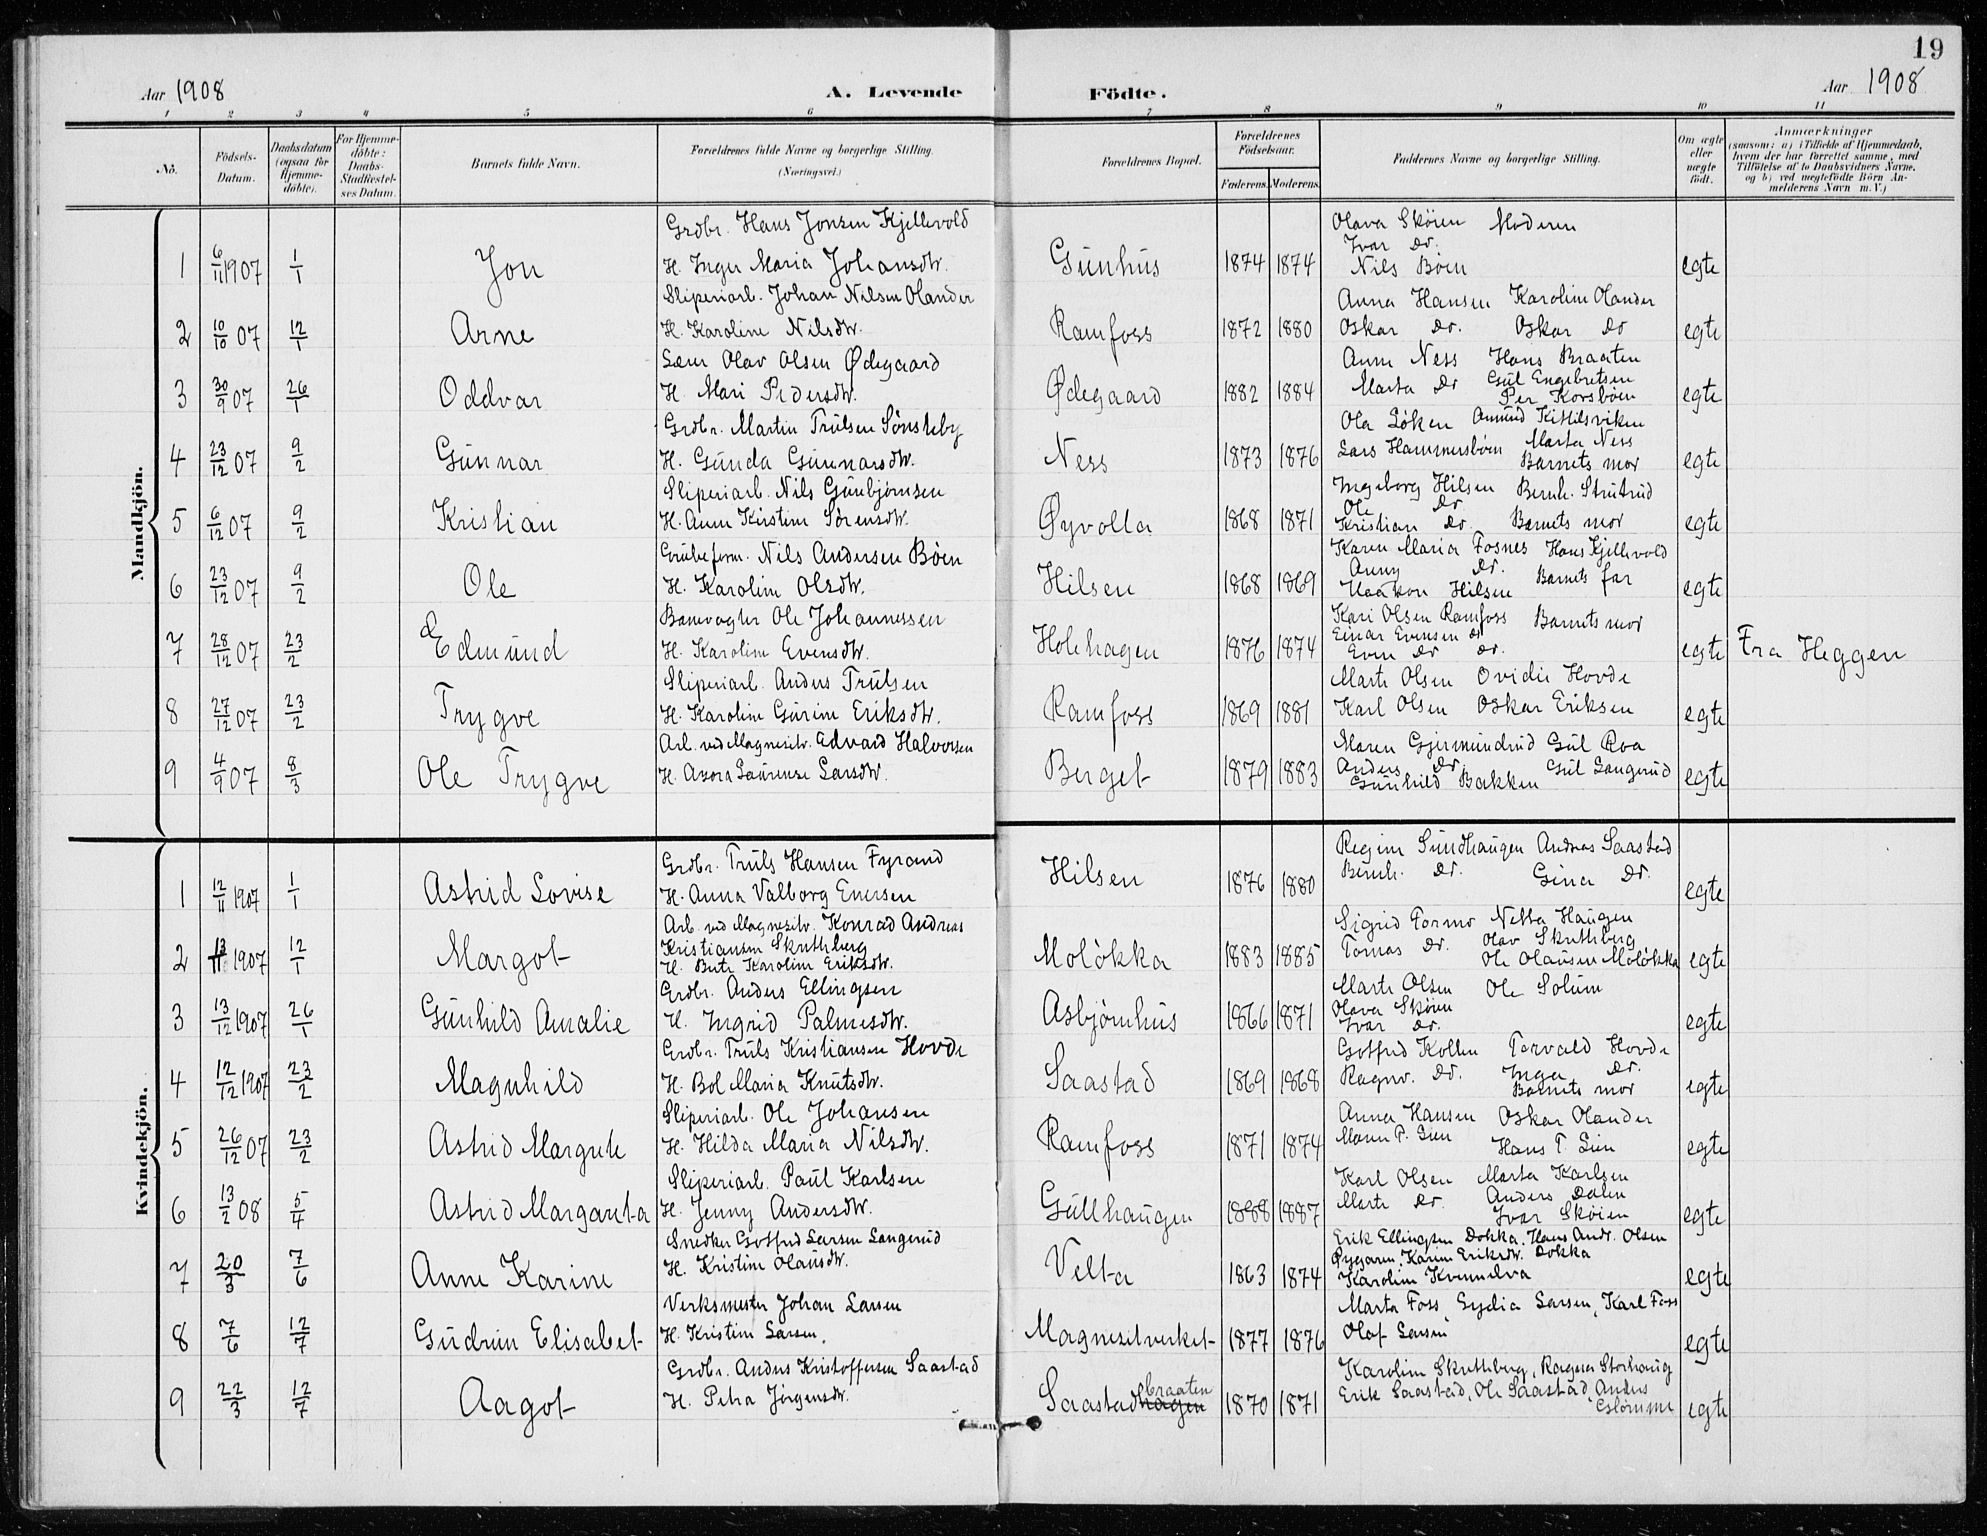 19
Aar 1908 A. Levende Födte. Aar 1908
1 2 3 4 5 6 7 8 9 10 11
No. Födsels-Datum. Daabsdatum (ogsaa for Hjemme-döbte). For Hjemme-döbte: Daabs-Stadfæstel-ses Datum. Barnets fulde Navn. Forældrenes fulde Navne og borgerlige Stilling. (Næringsvei.) Forældrenes Bopæl. Forældrenes Födselsaar. Faderens. Moderens. Faddernes Navne og borgerlige Stilling. Om ægte eller uægte født. Anmærkninger (saasom: a) i Tilfælde af Hjemmedaab, hvem der har forrettet samme, med Tilföielse af to Daabsvidners Navne, og b) ved uægtefödte Börn An-melderens Navn m.V.)
Mandkjön.
Grdbr. Hans Jonsen Kjellevold Olava Skøien Moderen
Ivar do.
1 6/11 1907 1/1 Jon H. Inger Maria Johansdtr. Gunhus 1874 1874 Nils Bøen egte
Sliperiarb. Johan Nilsen Olander Anna Hansen Karoline Olander
2 10/10 07 12/1 Arne H. Karoline Nilsdtr. Ramfoss 1872 1880 Oskar do. Oskar do egte
Lærer Olav Olsen Ødegaard Anne Ness Hans Braaten
3 30/9 07 26/1 Oddvar H Mari Pedersdtr. Ødegaard 1882 1884 Marta do Gul Engebretsen egte
Per Korsbøen
Grdbr. Martin Trulsen Sønsteby Ola Løken Amund Kittilsviken
4 23/12 07 9/2 Gunnar H. Gunda Gunnarsdtr. Ness 1873 1876 Lars Hammersbøen Marta Ness egte
Barnets mor
Sliperiarb. Nils Gunbjørnsen Ingeborg Hilsen Bernh. Strutrud
Ole do
5 6/12 07 9/2 Kristian H. Anne Kirstine Sørensdtr. Øyvolla 1868 1871 Kristian do. Barnets mor egte
Grubeform. Nils Andersen Bøen Karen Maria Fosnes Hans Kjellevold
Anny do.
6 23/12 07 9/2 Ole H. Karoline Olsdtr. Hilsen 1868 1869 Haakon Hilsen Barnets far egte
Banevogter Ole Johannessen Kari Olsen Ramfoss Barnets mor
Einar Evensen do
7 28/12 07 23/2 Edmund H. Karoline Evensdtr. Holehagen 1876 1874 Even do do. egte Fra Heggen
Sliperiarb. Anders Trulsen Marte Olsen Ovidie Hovde
8 27/12 07 23/2 Trygve H. Karoline Gurine Eriksdtr. Ramfoss 1869 1881 Karl Olsen Oskar Eriksen egte
Arb. ved Magnesitv. Edvard Halvorsen Maren Gjermundrud Gul Roa
Anders do. Gul Langerud
9 4/9 07 8/3 Ole Trygve H. Azora Laurense Larsdtr. Berget 1879 1883 Gunhild Bakken egte
Kvindekjön.
Grdbr. Truls Hansen Fyrand Regine Sundhaugen Andreas Saastad
Bernh. do. Gina do.
1 12/11 1907 1/1 Astrid Lovise H. Anna Valborg Enersen Hilsen 1876 1880 egte
Arb. ved Magnesitv. Konrad Andreas Sigrid Formo Netta Haugen
Kristiansen Skuthberg Tomas do. Olav Skuthberg
2 13/11 1907 12/1 Margot H. Berte Karoline Eriksdtr. Moløkka 1883 1885 Ole Olausen Moløkka egte
Grdbr. Anders Ellingsen Marte Olsen Ole Solum
Olava Skøien
3 13/12 1907 26/1 Gunhild Amalie H. Ingrid Palmesdtr. Asbjørnhus 1866 1871 Ivar do. egte
Grdbr. Truls Kristiansen Hovde Gotfred Kollen Torvald Hovde
4 12/12 1907 23/2 Magnhild H. Bol Maria Knutsdtr. Saastad 1869 1868 Ragnv. do. Inga do. egte
Barnets mor
Sliperiarb. Ole Johansen Anna Hansen Oskar Olander
5 26/12 07 23/2 Astrid Margrete H. Hilda Maria Nilsdtr. Ramfoss 1871 1874 Maren P. Lien Hans T. Lien egte
Sliperiarb. Paul Karlsen Karl Olsen Marta Karlsen
6 13/2 08 5/4 Astrid Margareta H. Jenny Andersdtr. Gullhaugen 1888 1887 Marte do. Anders Dalen egte
Ivar Skøien
Snedker Gotfred Larsen Langerud Erik Ellingsen Dokka, Hans Andr. Olsen
Øygaren, Karen Eriksdtr. Dokka
7 20/3 7/6 Anne Karine H. Kristine Olausdtr. Velta 1863 1874 Karoline Kvennelva egte
Verksmester Johan Larsen Marta Foss, Lydia Larsen, Karl Foss
8 7/6 12/7 Gudrun Elisabet H. Kristine Larsen. Magnesitverket 1877 1876 Olaf Larsen egte
Grdbr. Anders Kristoffersen Saastad Karoline Skuthberg, Ragna Storhaug
9 22/3 12/7 Aagot H. Petra Jørgensdtr. Saastadhagen braaten 1870 1871 Erik Saastad, Ole Saastad, Anders egte